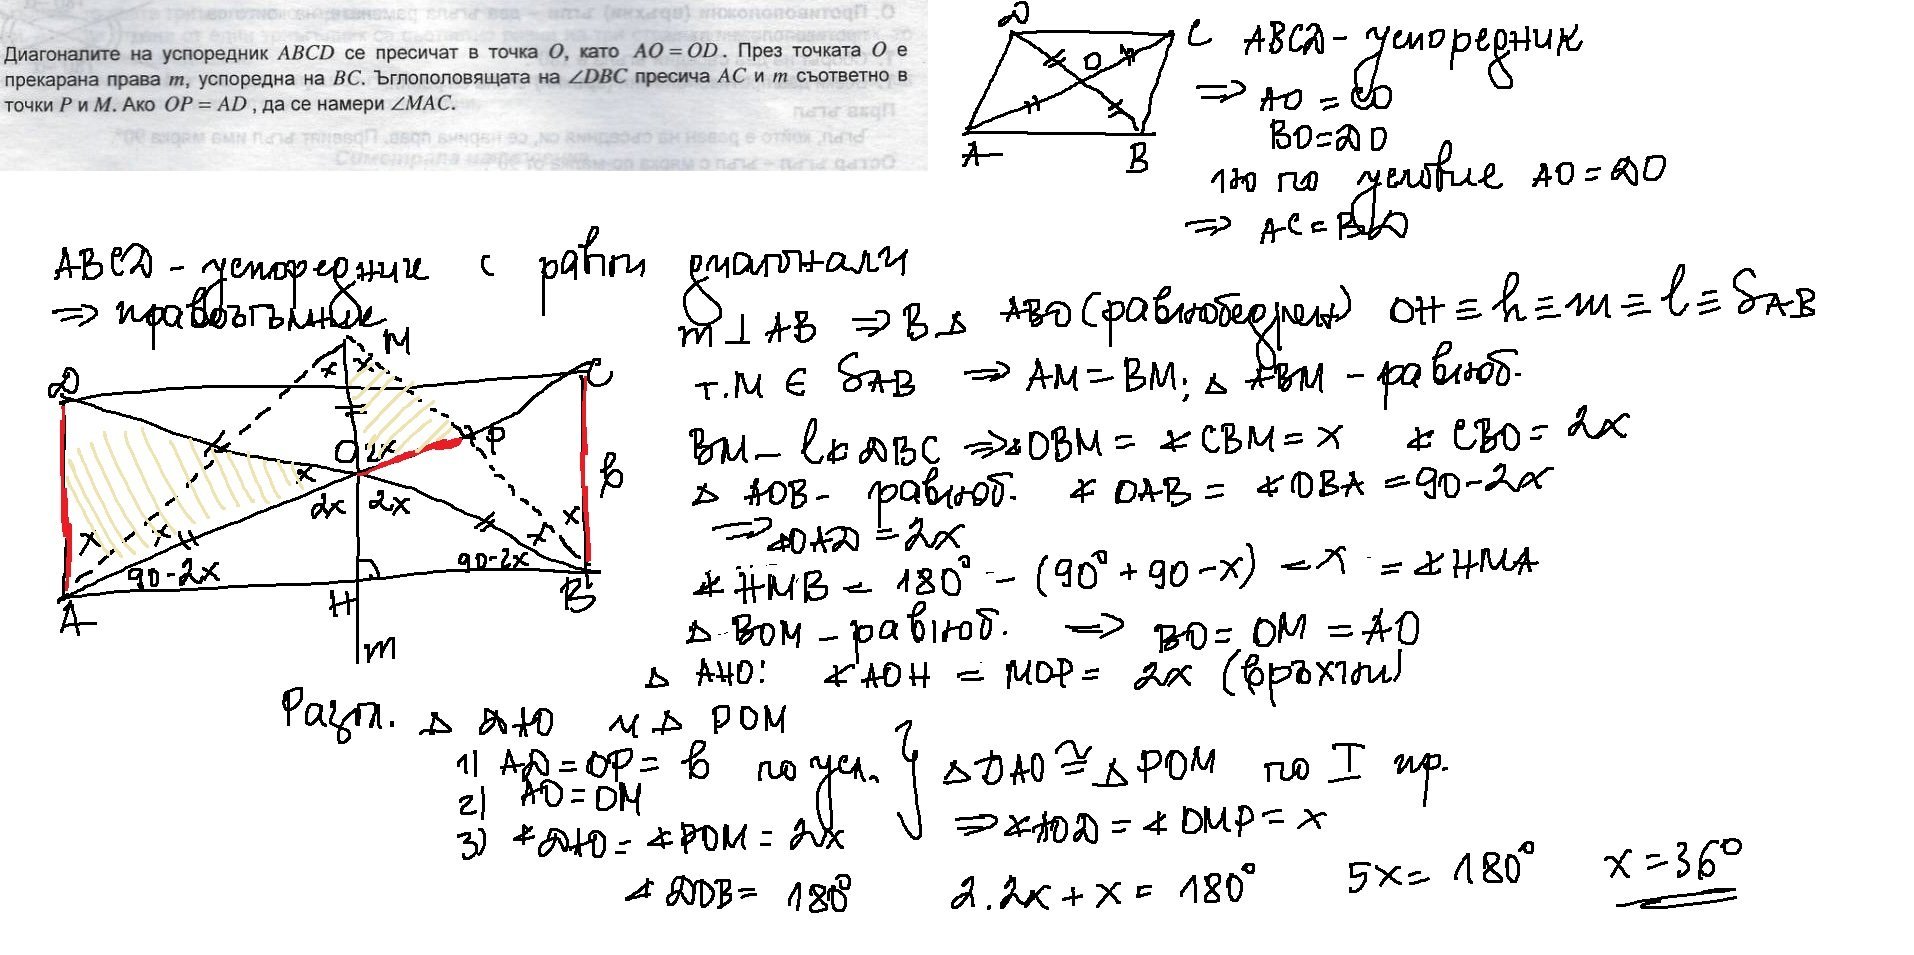 Диагоналите на успоредник ABCD се пресичат в точка O, като AO = OD. През точката O е
прекарана права m, успоредна на BC. Ъглополовящата на ∠DBC пресича AC и m съответно в
точки P и M. Ако OP = AD, да се намери ∠MAC.
D
C
O
A
B
ABCD - успоредник
⇒ AO = CO
BO = DO
но по условие AO = DO
⇒ AC = BD
ABCD - успоредник с равни диагонали
⇒ правоъгълник
m ⊥ AB ⇒ В △ ABO (равнобедрен) OH ≡ h ≡ m ≡ l ≡ S AB
т. M ∈ S AB ⇒ AM = BM; △ ABM - равноб.
BM - l ∢ DBC ⇒ ∢OBM = ∢ CBM = x ∢ CBO = 2x
△ AOB - равноб. ∢ OAB = ∢ OBA = 90-2x
⇒ ∢OAD = 2x
∢ HMB = 180° - (90° + 90 - x) = x = ∢ HMA
△ BOM - равноб. ⇒ BO = OM = AO
△ AHO: ∢ AOH = MOP = 2x (връхни)
M
x x
D
C
O 2x
P
x
2x 2x
в
x x
x x
90-2x
90-2x
A
H
B
m
Разгл. △ DAO и △ POM
1) AD = OP = в по усл.
2) AO = OM
3) ∢ DAO = ∢ POM = 2x
} △ DAO ≅ △ POM по I пр.
⇒ ∢AOD = ∢ OMP = x
∢ DOB = 180° 2.2x + x = 180° 5x = 180° x = 36°